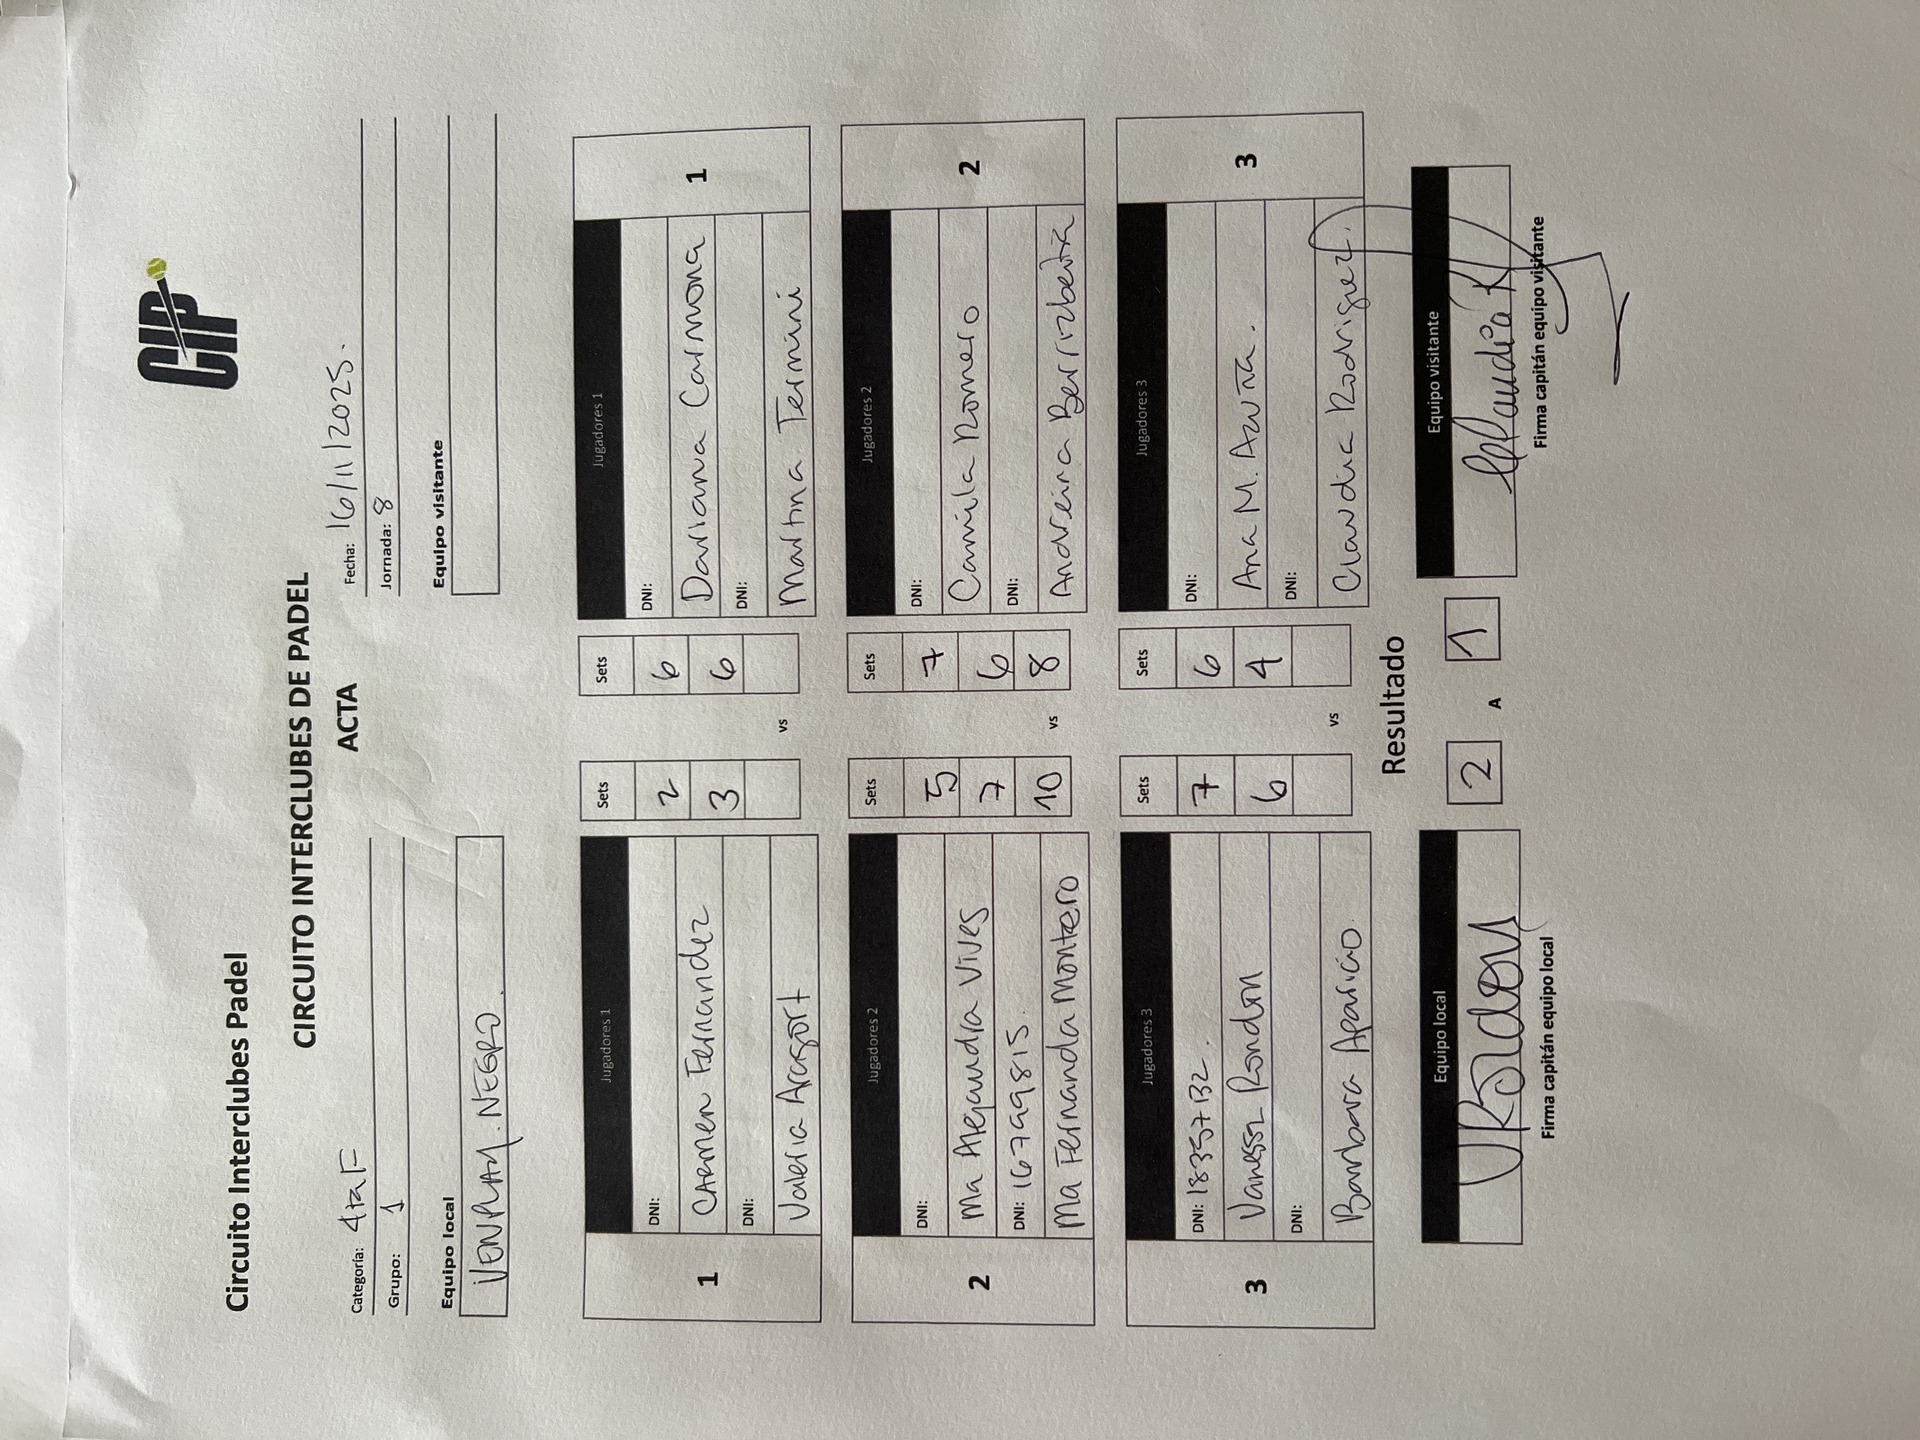 CIP
Circuito Interclubes Padel
CIRCUITO INTERCLUBES DE PADEL
ACTA
Categoría: 4ta F
Fecha: 16/11/2025.
Grupo: 1
Jornada: 8
Equipo local
Equipo visitante
VENPLAY. NEGRO.
Jugadores 1
Sets
Sets
Jugadores 1
1
DNI:
2
6
DNI:
1
Carmen Fernandez
3
6
Dariana Carmona
DNI:
vs
DNI:
Valeria Aragort
Martina Termini
Jugadores 2
Sets
Sets
Jugadores 2
2
DNI:
5
7
DNI:
2
Ma Alejandra Vives
7
6
Camila Romero
DNI: 16799815.
10
vs
8
DNI:
Ma Fernanda Montero
Andreina Berrizbeitia
Jugadores 3
Sets
Sets
Jugadores 3
3
DNI: 18357132.
7
6
DNI:
3
Vanessa Rondon
6
4
Ana M. Azuña.
DNI:
vs
DNI:
Barbara Aparicio.
Claudia Rodriguez.
Resultado
Equipo local
2
A
1
Equipo visitante
Firma capitán equipo local
Firma capitán equipo visitante